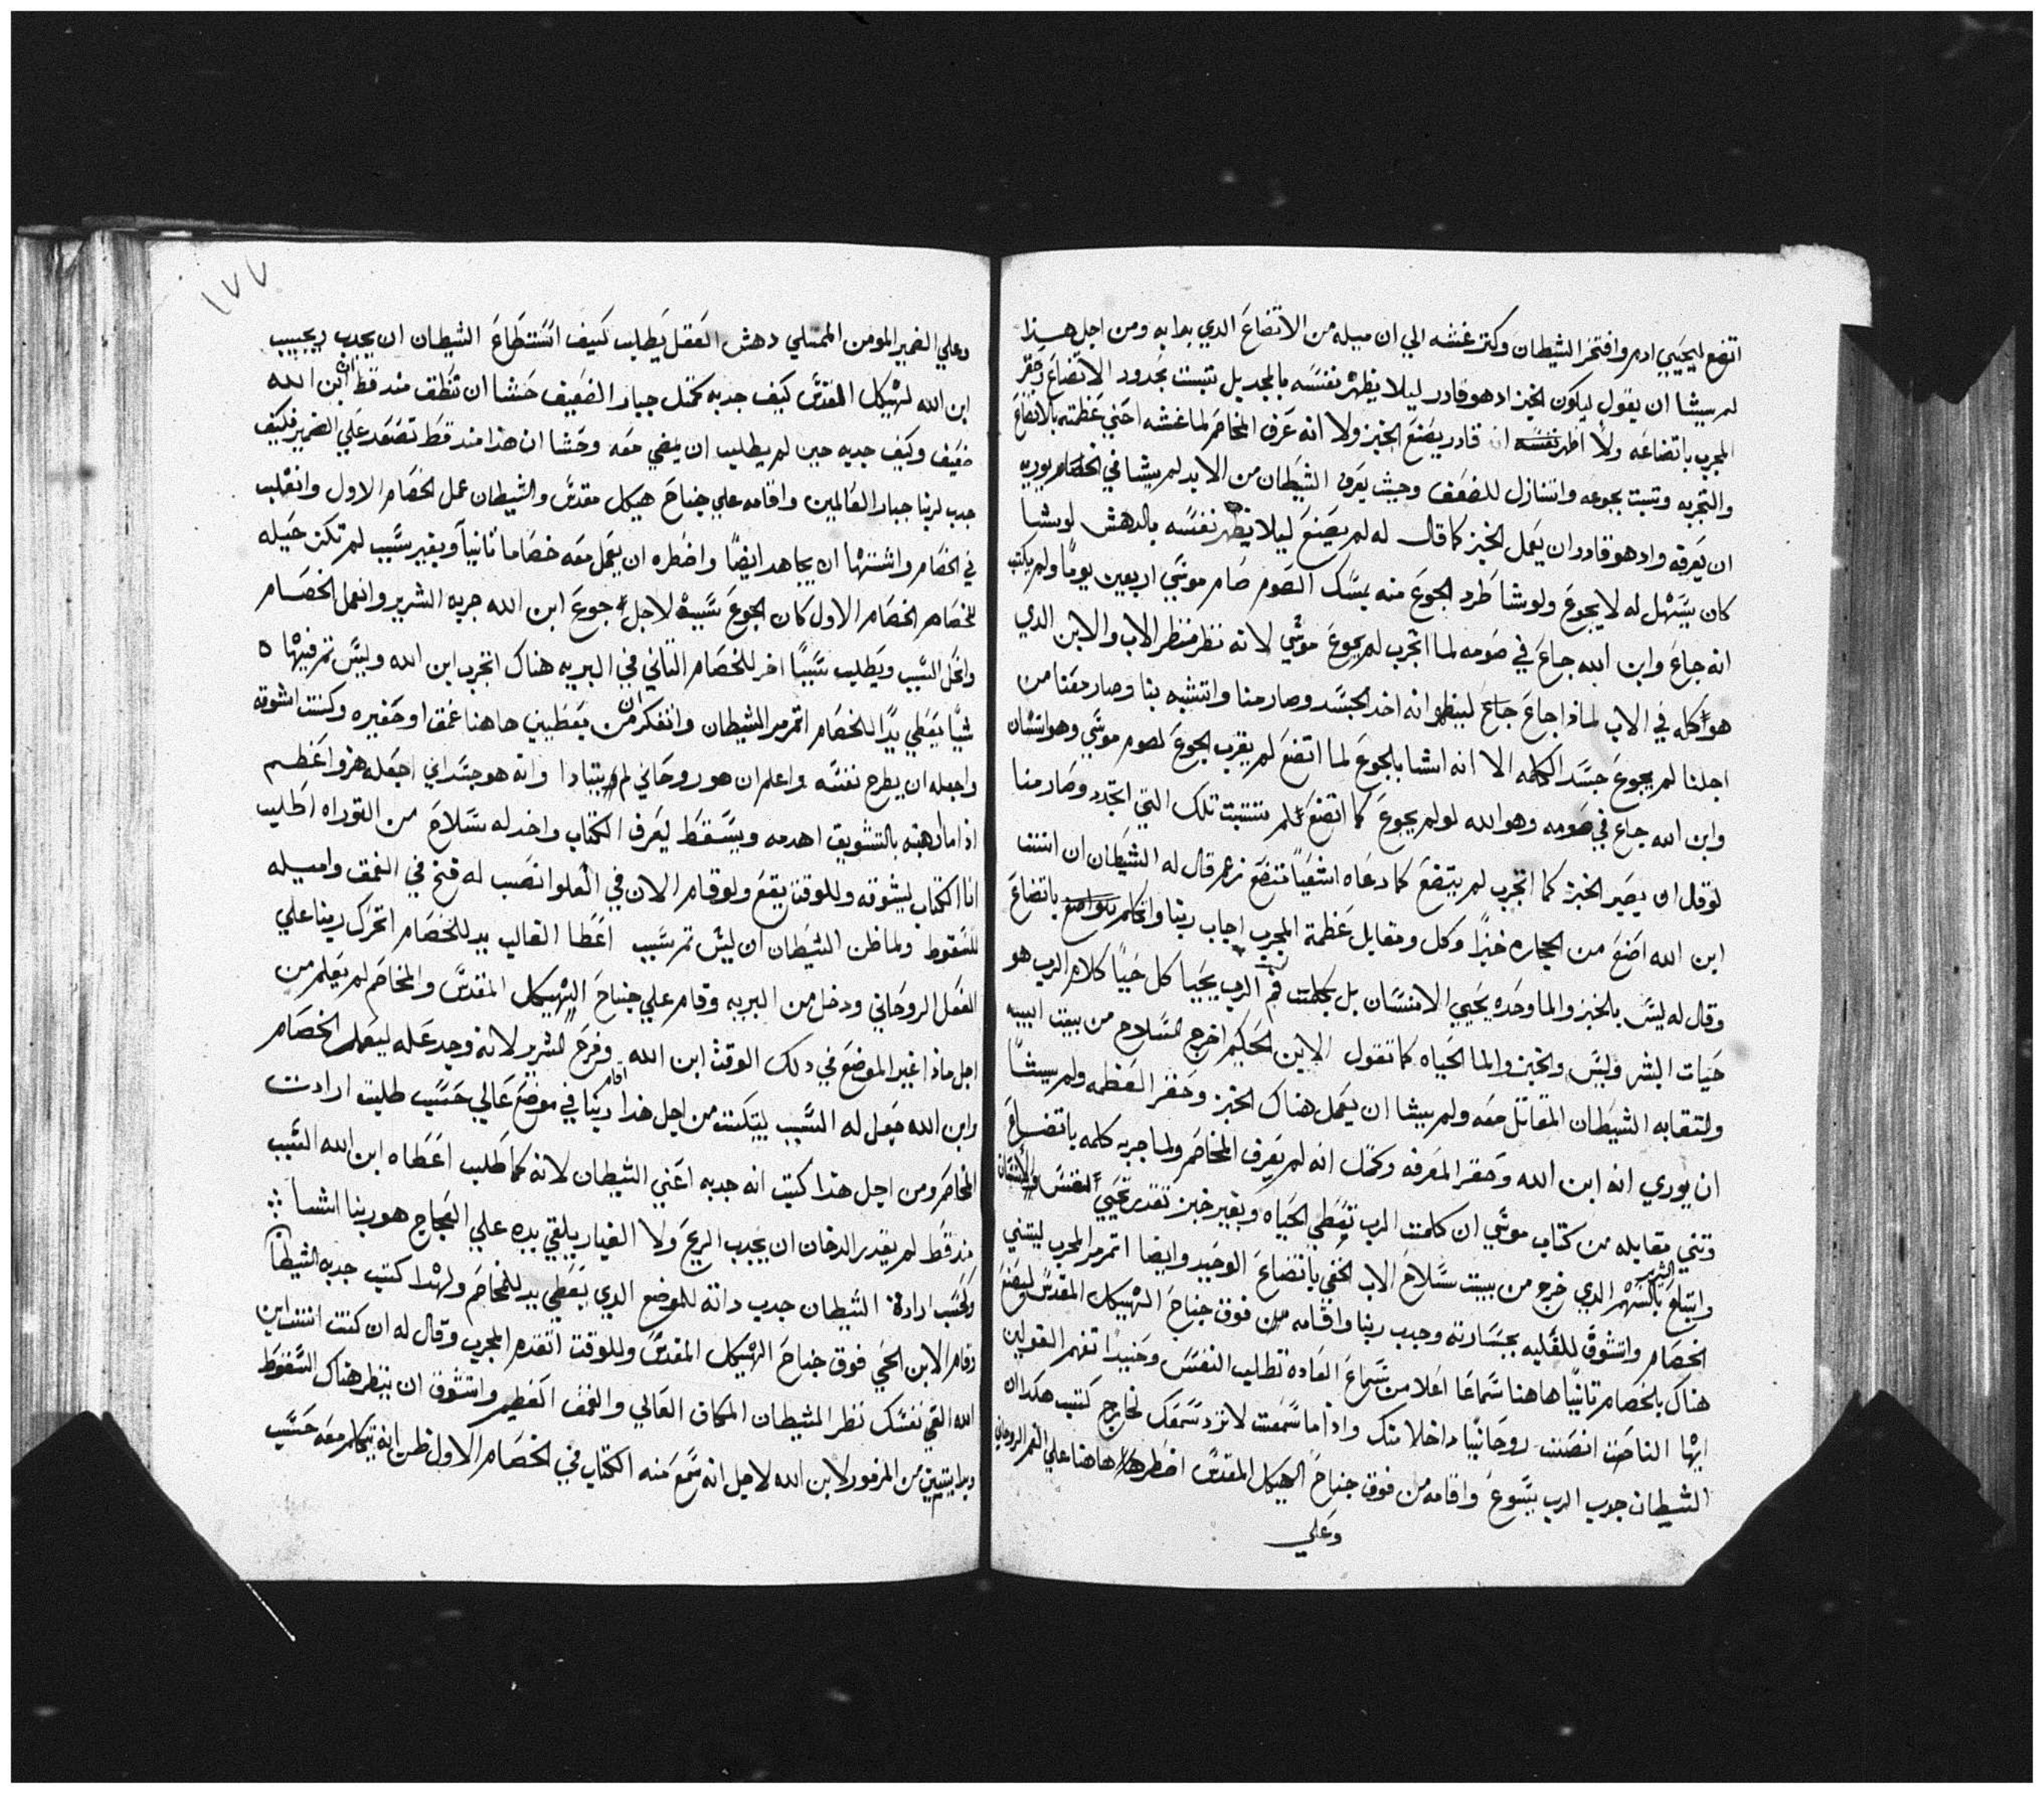 اتضع ليحيي ادم وافتخر الشيطان وكتر غشه الي ان ميله من الاتضاع الدي بدا به ومن اجل هذا
لم يشا ان يقول ليكون الخبز اد هو قادر ليلا يظهر نفسه بالمجد بل تتبت بحدود الاتضاع وحقر
المجرب باتضاعه ولا اظهر نفسه ان قادر يصنع الخبز ولا انه عرف المخاصم لما غشه اخفي عظمته بالاتضاع
والتجربه وتبت بجوعه واتنازل للضعف وحيت يعرف الشيطان من الابد لم يشا في الخصام يوريه
ان يعرفه واد هو قادر ان يعمل الخبز كما قال له لم يصنع ليلا يظهر نفسه بالدهش لو يشا
كان يسهل له لا يجوع ولو شا طرد الجوع منه بمسك الصوم صام موسي اربعين يومًا ولم يكتب
انه جاع وابن الله جاع في صومه لما اتجرب لم يجوع موسي لانه نظر منظر الاب والابن الدي
هو كله في الاب لمادا جاع جاع ليظهر انه اخد الجسد وصار منا واتشبه بنا وصار معنا من
اجلنا لم يجوع جسد الكلمه الا انه انشا بالجوع لما اتضع لم يقرب الجوع لصوم موسي وهو انسان
وابن الله جاع في صومه وهو الله لو لم يجوع كما اتضع لم تتتبت تلك التي اتجدد وصار منا
لو قال ان يصير الخبز كما اتجرب لم يتضع كما دعاه اشعيا متضع زعم قال له الشيطان ان انت
ابن الله اصنع من الحجاره خبزًا وكل ومقابل عظمة المجرب اجاب ربنا واتكلم باتضاع
وقال له ليس بالخبز والما وحده يحيي الانسان بل بكلمت فم الرب يحيا كل حيًا كلام الرب هو
حيات البشر وليس الخبز والما الحياه كما تقول الابن الحكيم اخرج السلاح من بيت ابيه
ولتقابه الشيطان المقاتل معه ولم يشا ان يعمل هناك الخبز وحقر العظمه ولم يشا
ان يوري انه ابن الله وحقر المعرفه وكمل انه لم يعرف المخاصم ولما جربه كلمه باتضاع
وتني مقابله من كتاب موسي ان كلمت الرب تعطي الحياه وبغير خبز تقدر تحيي النفس والانسان
واتبلع الشرير بالسهم الدي خرج من بيت سلاح الاب الخفي باتضاع الوحيد وايضا اتمرمر المجرب ليتني
الخصام واتشوق للغلبه بجسارته وجدب ربنا واقامه من فوق جناح الهيكل المقدس ليصنع
هناك بالخصام تانيًا هاهنا سماعًا اعلا من سماع العاده تطلب النفس وحينيدًا تفهم القولين
ايها الناصت انصت روحانيًا داخلا منك واذا ما سمعت لا ترد سمعك لخارج كتب هكدا ان
الشيطان جدب الرب يسوع واقامه من فوق جناح الهيكل المقدس هاهنا علي الفم الروحاني
وعلي
١٧٧
وعلي الضمير المومن الممتلي دهش العقل يطلب كيف استطاع الشيطان ان يجدب ويجيب
ابن الله لهيكل المقدس كيف جدبه كمتل جبار الضعيف حشا ان تنطق مند قط ان ابن الله
ضعيف وكيف جدبه حين لم يطلب ان يمضي معه وحشا ان هذا مند قط تصعد علي الضمير فكيف
جدب لربنا جبار العالمين واقامه علي جناح هيكل مقدس والشيطان عمل الخصام الاول وانغلب
في الخصام واشتها ان يجاهد ايضًا واضطره ان يعمل معه خصامًا تانيًا وبغير سبب لم تكن حيله
للخصام الخصام الاول كان الجوع سببه لاجل جوع ابن الله جربه الشرير وانعمل الخصام
واتحل السبب ويطلب سببًا اخر للخصام التاني في البريه هناك اتجرب ابن الله وليس تم فيها ه
شيًا يعطي يدًا للخصام اتمرمر الشيطان واتفكر ان من يعطيني هاهنا عمق او حفيره وكنت اشوقه
واجعله ان يطرح نفسه واعلم ان هو روحاني لم يتبادا وانه هو جسداني اجعله هزو اعظم
اذا ما لرهبته بالتشويق اهدمه ويسقط ليعرف الكتاب واخد له سلاح من التوراه اطلب
انا الكتاب ليشوقه وللوقت يقع ولو قام الان في العلو انصب له فخ في العمق واميله
للسقوط ولما ظن الشيطان ان ليس تم سبب اعطا الغالب يد للخصام اتحرك ربنا علي
الفعل الروحاني ودخل من البريه وقام علي جناح الهيكل المقدس والمخاصم لم يعلم من
اجل ماذا غير الموضع في دلك الوقت ابن الله وفرح الشرير لانه وجد عله ليعمل الخصام
وابن الله جعل له السبب ليتكت من اجل هذا اقام ربنا في موضع عالي حسب طلبت ارادت
المخاصم ومن اجل هذا كتب انه جدبه اعني الشيطان لانه كما طلب اعطاه ابن الله السبب
مند قط لم يقدر الدخان ان يجدب الريح ولا الغبار يلقي يده علي العجاج هو ربنا انشا
وكحسب ارادة الشيطان جدب داته للموضع الدي يعطي يد للمخاصم ولهدا كتب جدبه الشيطان
وقام الابن الحي فوق جناح الهيكل المقدس وللوقت اتقدم المجرب وقال له ان كنت انت ابن
الله القي نفسك نظر الشيطان المكان العالي والعمق العظيم واتشوق ان ينظر هناك السقوط
وبدا يتبين من المزمور لابن الله لاجل انه سمع منه الكتاب في الخصام الاول ظن انه يتكلم معه حسب